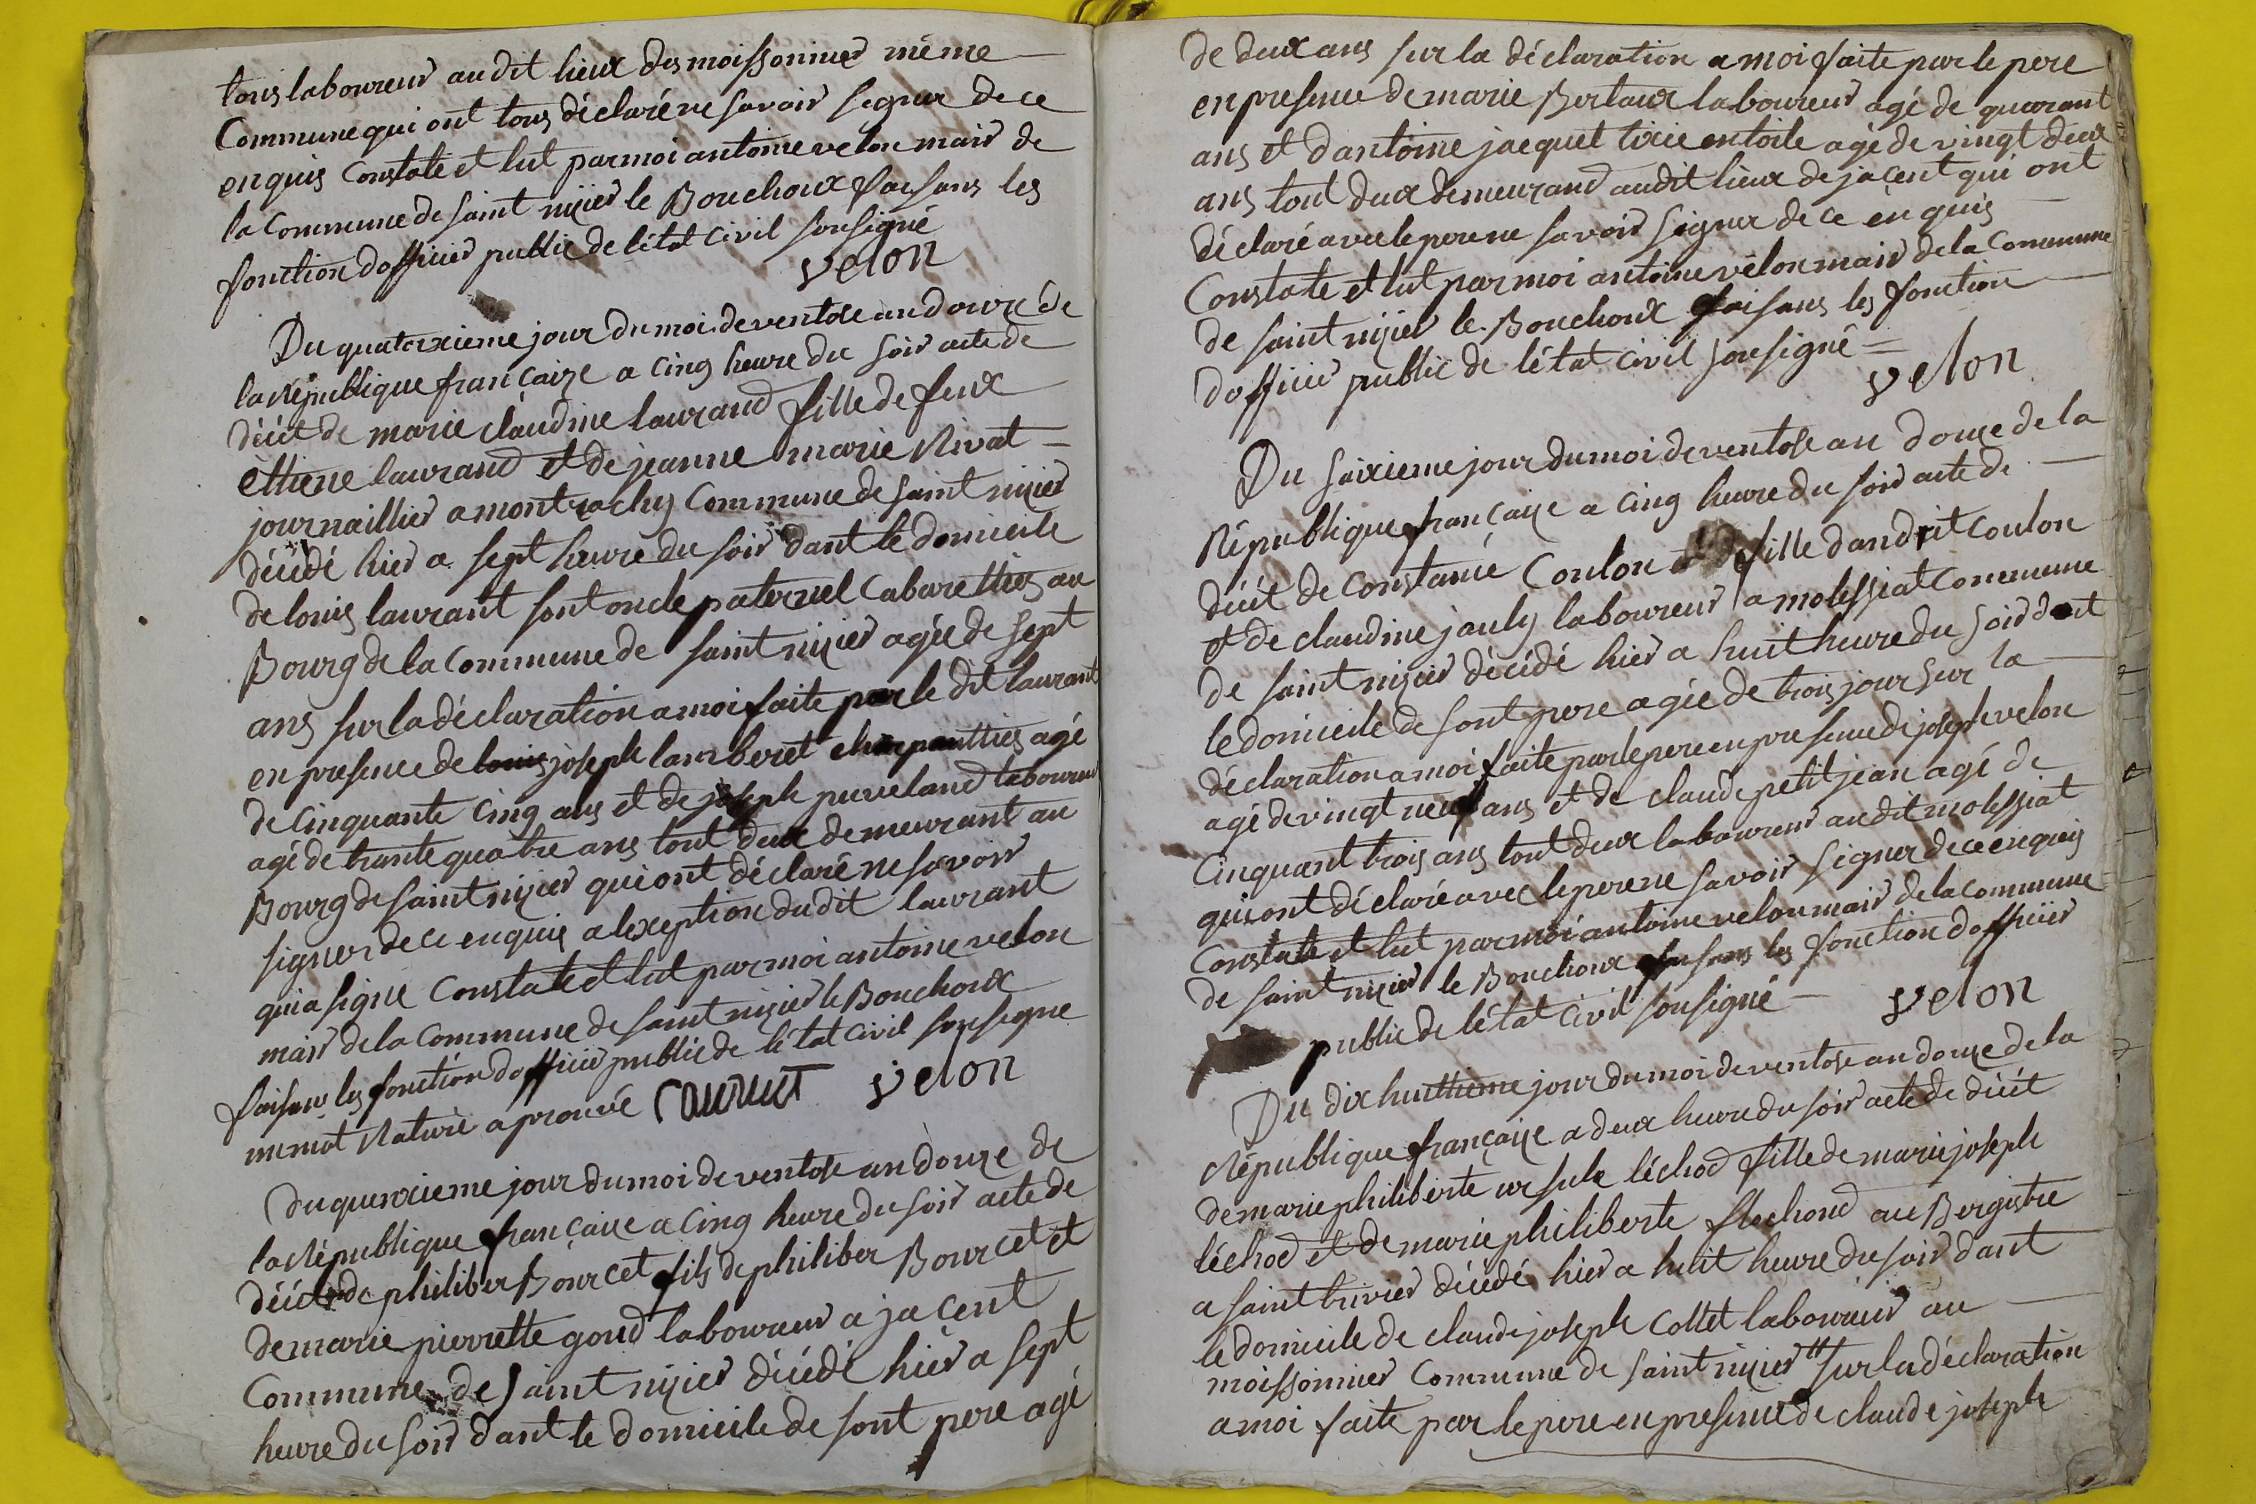 tous laboureur audit lieux des moissonnier même
Commune qui ont tous déclaré ne savoir signer de ce
enquis Constate et lut par moi antoine velon mair de
la Commune de saint nizier le Bouchoux faisans les
fonction dofficier public de létat civil sousigné
velon
Du quatorxieme jour du moi de ventose an douze de
la République françaize a cinq heure du soir acte de
décét de marie claudine laurand fille de feux
ettiene laurand et de jeanne marie Rivat
journaillier a montrachy Commune de saint nizier
décédé hier a sept heure du soir dant le domicile
de louis laurant sont oncle paternel Cabarettier au
Bourg de la Commune de saint nizier agée de sept
ans sur la déclaration a moi faite par le dit laurant
en presence de louis joseph lamberet charpanttier agé
de cinquante cinq ans et de joseph puveland laboureur
agé de trante quatre ans tout deux demeurant au
Bourg de saint nizier qui ont déclaré ne savoir
signer de ce enquis a lexception dudit laurant
qui a signe Constate et lut par moi antoine velon
mair de la Commune de saint nizier le Bouchoux
faisans les fonction dofficier public de létat civil sousigne
un mot Raturé aprouvé laurant velon
Du quenxieme jour du moi de ventose an douze de
la République françaize a cinq heure du soir acte de
décét de philiber Bourcet fils de philiber Bourcet et
de marie pierrette goud laboureur a jacent
Commune de saint nizier décédé hier a sept
heure du soir dant le domicile de sont pere agé
de deux ans sur la déclaration a moi faite par le pere
en presence de marie Bertaux laboureur agé de quarant
ans et dantoine jacquet tixie en toile agé de vingt deux
ans tout deux demeurand audit lieux de jacent qui ont
déclaré avec le pere ne savoir signer de ce enquis
Constate et lut par moi antoine velon mair de la Commune
de saint nizier le Bouchoux faisans les fonction
dofficier public de létat civil sousigné
velon
Du saixieme jour du moi de ventose an douze de la
République françaize a cinq heure du soir acte de
décét de constance Coulon fille dandrit Coulon
et de claudine jauly laboureur a molessiat Commune
de saint nizier décédé hier a huit heure du soir dant
le domicile de sont pere agée de trois jour sur la
déclaration a moi faite par le pere en presence de joseph velon
agé de vingt neuf ans et de claude petitjean agé de
Cinquant trois ans tout deux laboureur audit molessiat
qui ont déclaré avec le pere ne savoir signer de ce enquis
Constate et lut par moi antoine velon mair de la commune
de saint nizier le Bouchoux faisans les fonction dofficier
public de létat civil sousigné velon
Du dix huittieme jour du moi de ventose an douze de la
République françaize a deux heure du soir acte de décét
de marie philiberte ursule léchod fille de marie joseph
léchod et de marie philiberte flechond au Bergistre
a saint trivier décédé hier a huit heure du soir dant
le domicile de claude joseph Collet laboureur au
moissonnier Commune de saint nizier sur la déclaration
a moi faite par le pere en presence de claude joseph